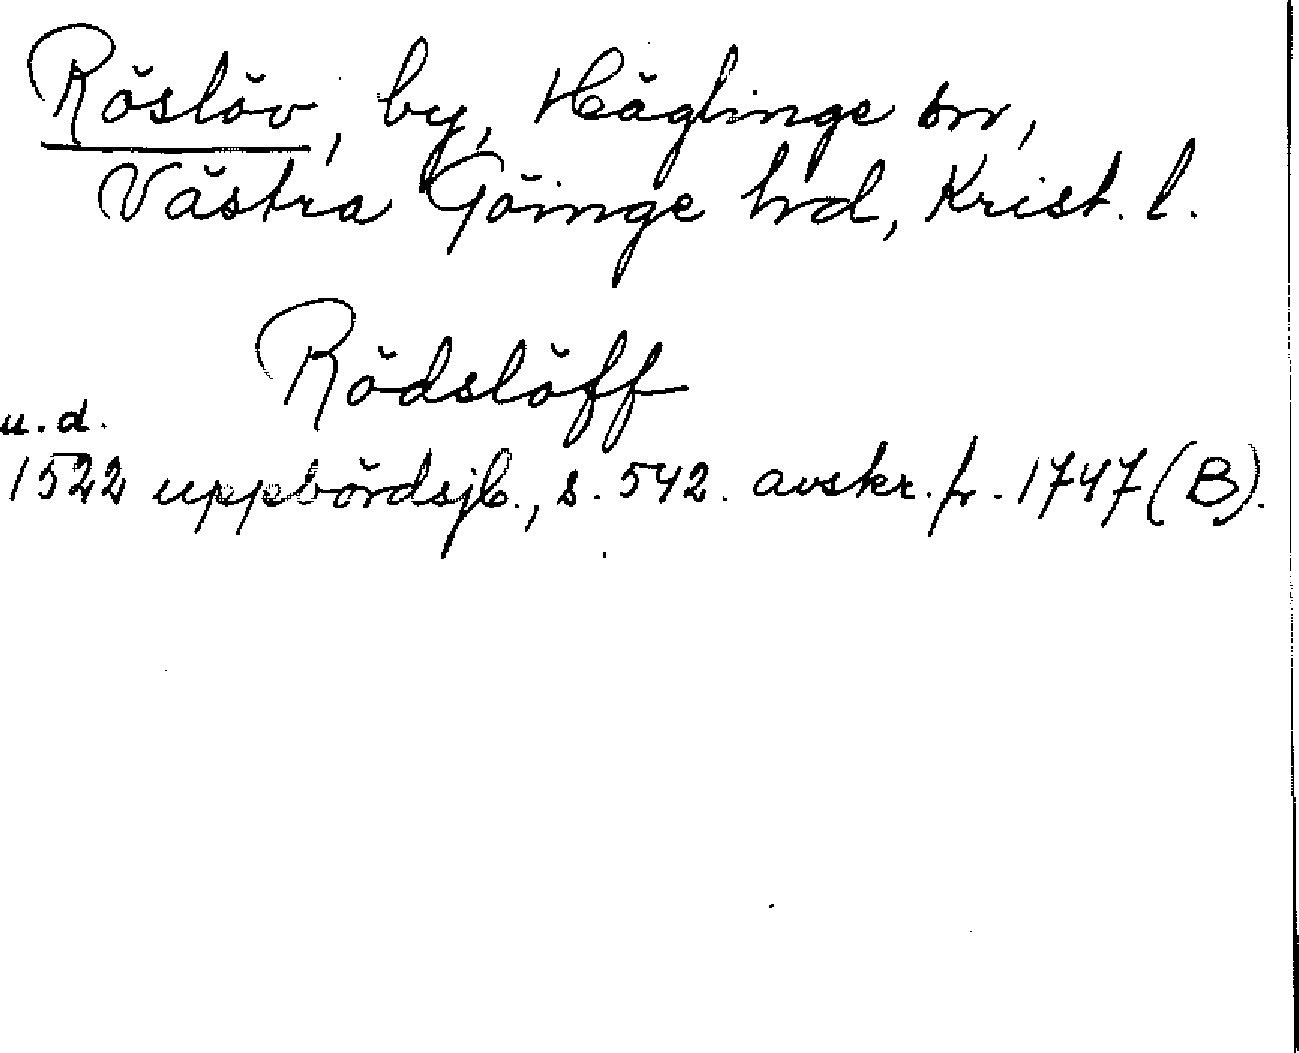 Röslöv, by, Häglinge sn,
Västra Göinge hrd, Krist. l.
Rödslöff
u.d.
1522 uppbördsjb., s. 542. avskr. fr. 1747 (B).